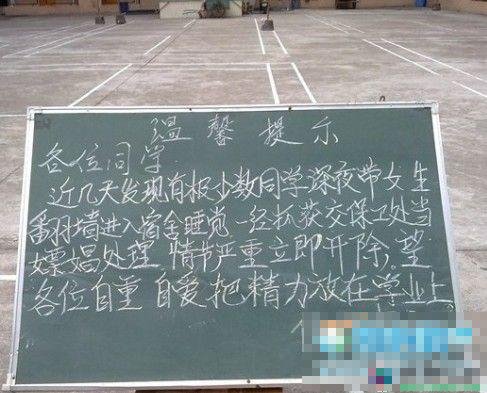 温馨提示
各位同学
近几天发现有极少数同学深夜带女生
翻羽墙进入宿舍睡觉一经抓获交保卫处当
嫖娼处理 情节严重立即开除。望
各位自重 自爱把精力放在学业上